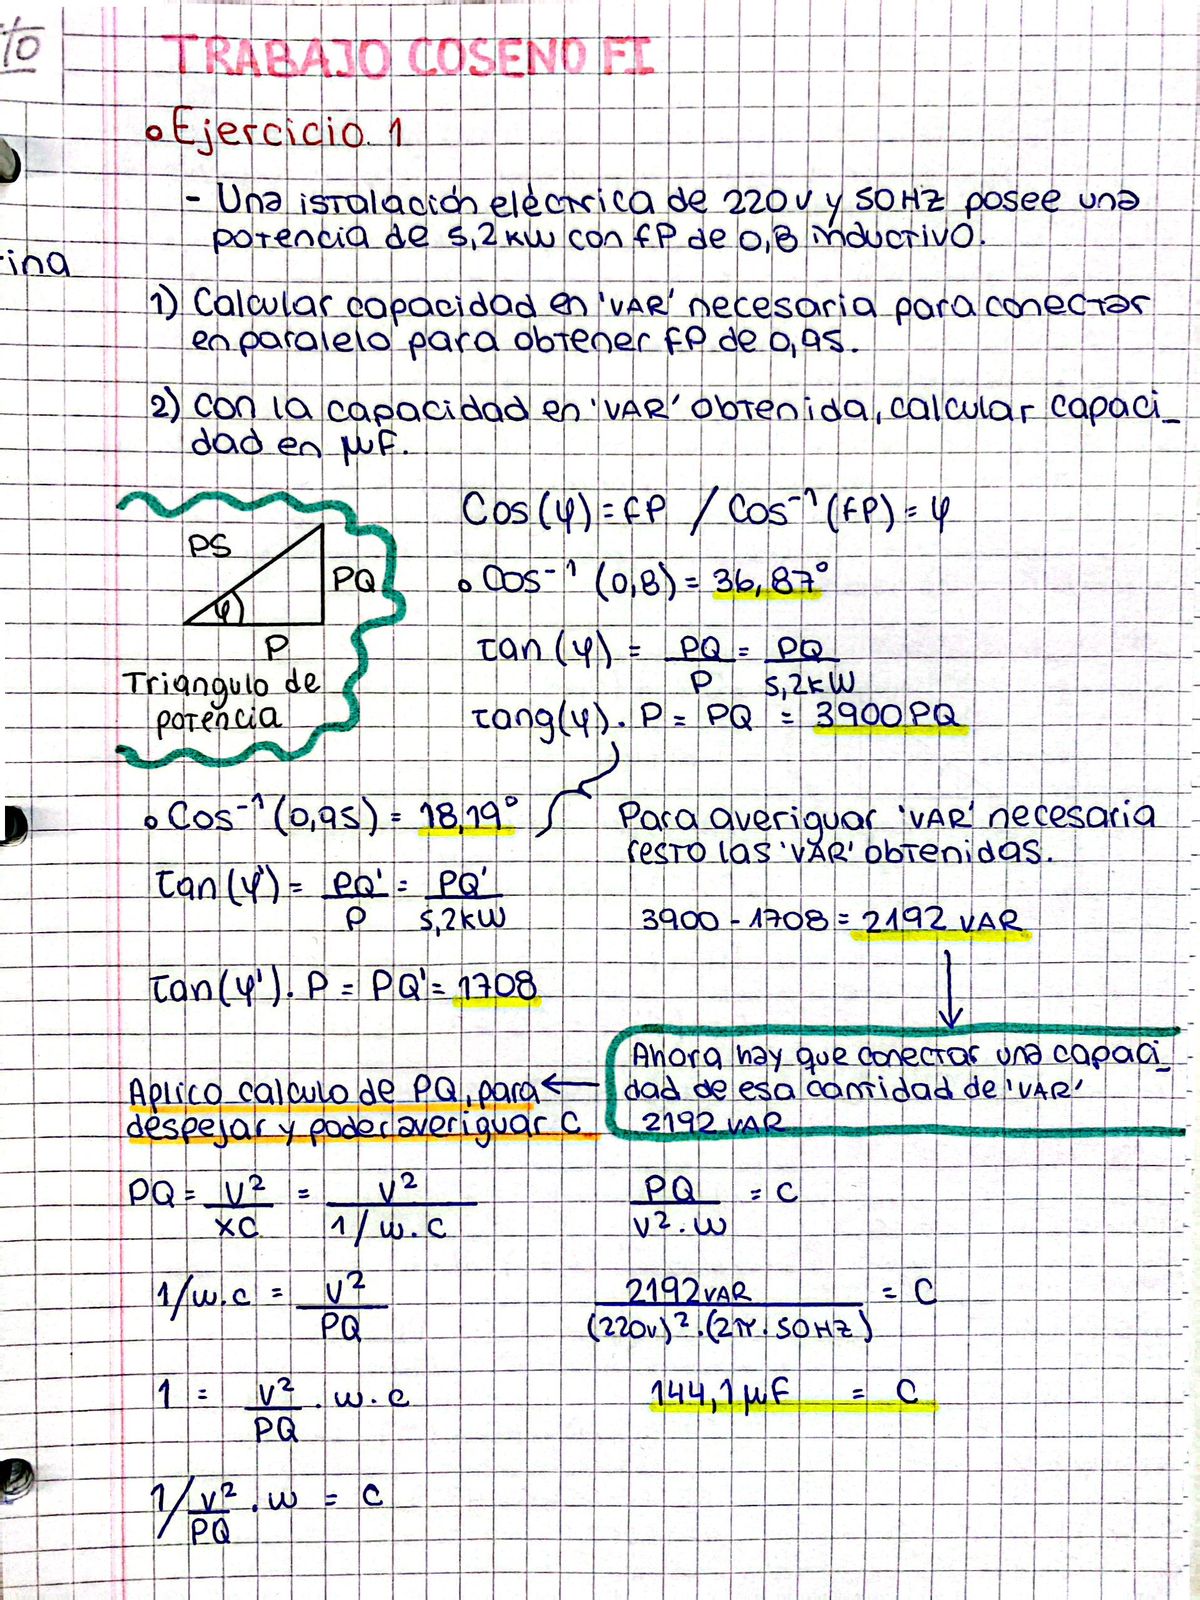 to
TRABAJO COSENO FI
• Ejercicio. 1
- Una istalación eléctrica de 220v y 50Hz posee una
potencia de 5,2kw con fP de 0,8 inductivo.
ina
1) Calcular capacidad en 'VAR' necesaria para conectar
en paralelo para obtener fP de 0,95.
2) con la capacidad en 'VAR' obtenida, calcular capaci_
dad en μF.
PS
PQ
φ
P
Triangulo de
potencia
Cos(φ) = fP / Cos⁻¹(fP) = φ
• Cos⁻¹ (0,8) = 36,87°
tan (φ) = PQ/P = PQ/5,2kW
tang(φ) . P = PQ = 3900PQ
• Cos⁻¹ (0,95) = 18,19°
tan(φ') = PQ'/P = PQ'/5,2kW
tan(φ'). P = PQ' = 1708
Para averiguar 'VAR' necesaria
resto las 'VAR' obtenidas.
3900 - 1708 = 2192 VAR
Ahora hay que conectar una capaci_
dad de esa cantidad de 'VAR'
2192 VAR
Aplico calculo de PQ, para
despejar y poder averiguar C
PQ = V²/XC = V²/1/w.c
1/w.c = V²/PQ
1 = V²/PQ . w.c
1/V²/PQ . w = c
PQ/V².w = C
2192VAR/(220v)².(2π.50Hz) = C
144,1μF = C